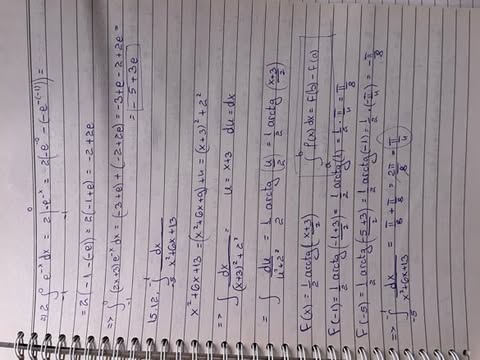 ⇒ 2 ∫₋₁⁰ e⁻ˣ dx = 2 |₋₁⁰ -e⁻ˣ = 2(-e⁻⁰ - (-e⁻⁽⁻¹⁾)) =
= 2(-1 - (-e)) = 2(-1+e) = -2+2e
⇒ ∫₋₁⁰ (2x+3)e⁻ˣ dx = (-3+e) + (-2+2e) = -3+e-2+2e =
= -5+3e
15.12. ∫₋₅⁻¹ dx/(x²+6x+13)
x²+6x+13 = (x²+6x+9)+4 = (x+3)²+2²
⇒ ∫ dx/((x+3)²+2²) = u = x+3 du = dx
= ∫ du/(u²+2²) = 1/2 arctg(u/2) = 1/2 arctg((x+3)/2)
F(x) = 1/2 arctg((x+3)/2) ∫ₐᵇ f(x) dx = F(b) - F(a)
F(-1) = 1/2 arctg((-1+3)/2) = 1/2 arctg(1) = 1/2 · π/4 = π/8
F(-5) = 1/2 arctg((-5+3)/2) = 1/2 arctg(-1) = 1/2 · (-π/4) = -π/8
⇒ ∫₋₅⁻¹ dx/(x²+6x+13) = π/8 + π/8 = 2π/8 = π/4